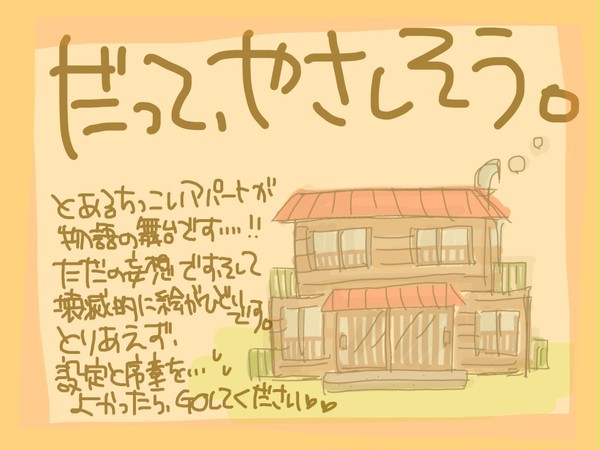 だって、やさしそう。
とあるちっこいアパートが
物語の舞台です…!!
ただの妄想ですそして
壊滅的に絵がひどいです。
とりあえず、
設定と序章を…
よかったら、GOしてください